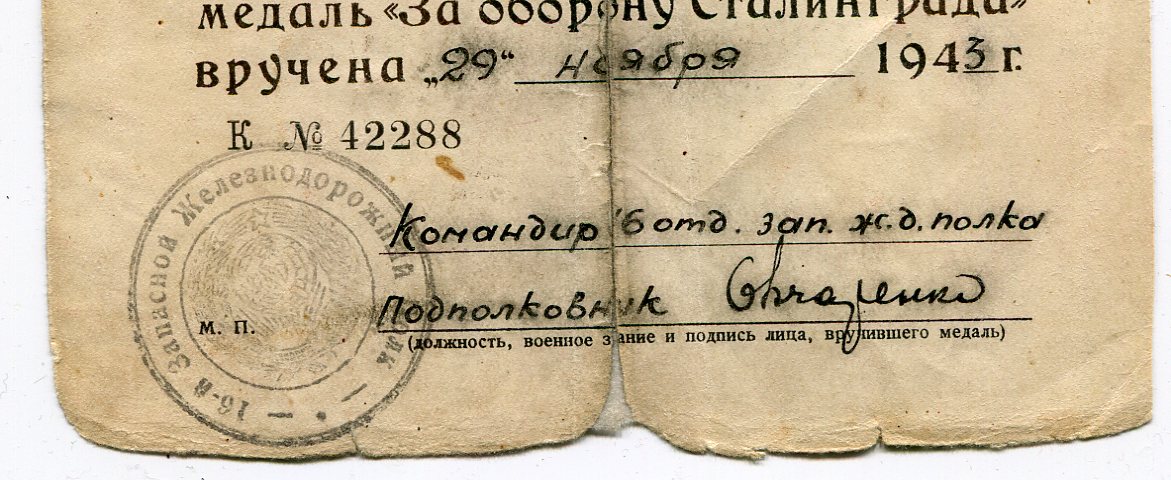 медаль «За оборону Сталинграда»
вручена „29“ ноября 1943 г.
К № 42288
Командир 16 отд. зап. ж.д. полка
Подполковник Овчаренко
М. П.
(должность, военное звание и подпись лица, вручившего медаль)
16-й Запасной Железнодорожный полк